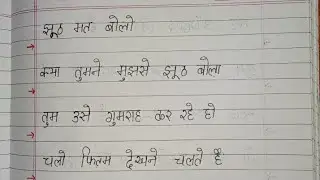 झूठ मत बोलो
क्या तुमने मुझसे झूठ बोला
तुम उसे गुमराह कर रहे हो
चलो फिल्म देखने चलते है